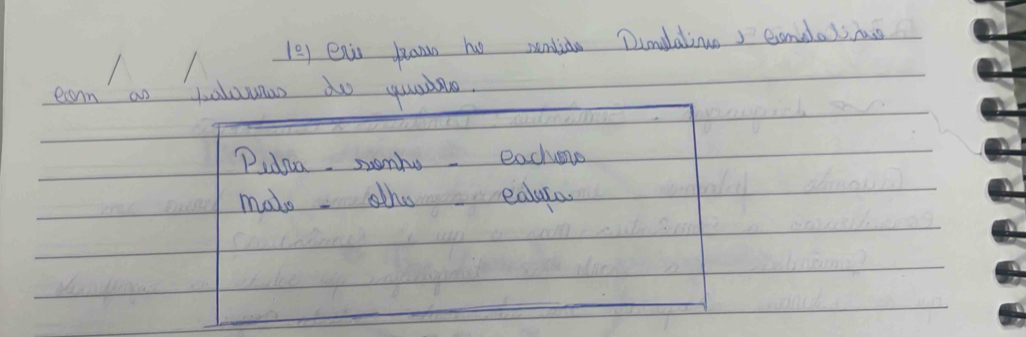 1º) Crie frases no sentido Denotativo e conotativo
com as palavras do quadro.
Pedra - sonho - cachoro
mato - olho - cabeça